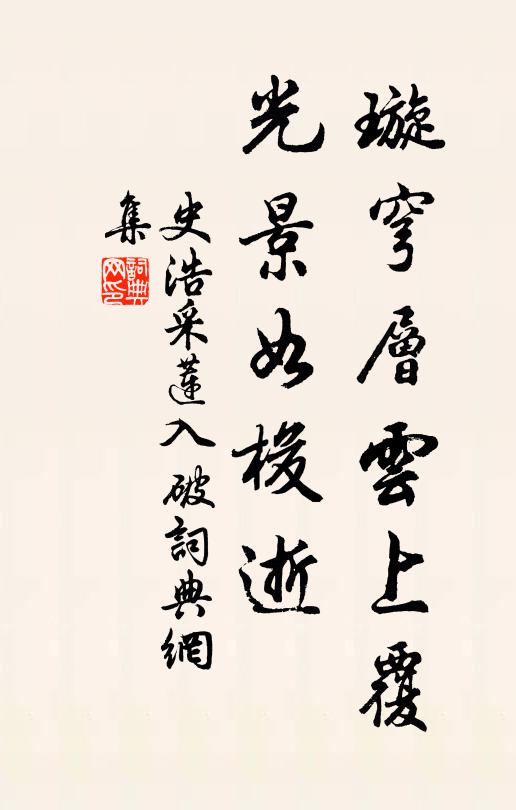 璇穹層雲上覆
光景如梭逝
史浩采蓮入破詞典網
集
詞典網印